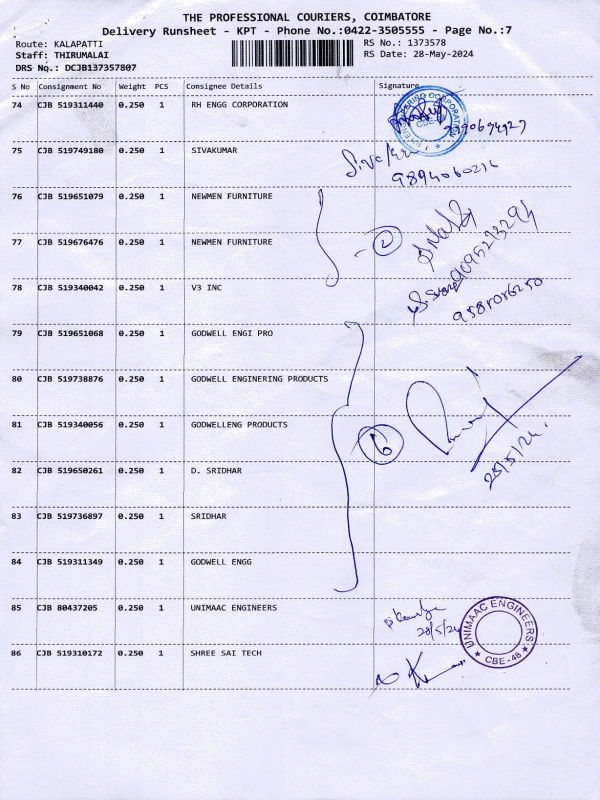 THE PROFESSIONAL COURIERS, COIMBATORE
Delivery Runsheet - KPT - Phone No.:0422-3505555 - Page No.:7
Route: KALAPATTI RS No.: 1373578
Staff: THIRUMALAI RS Date: 28-May-2024
DRS No.: DCJB137357807
S No Consignment No Weight PCS Consignee Details Signature
74 CJB 519311440 0.250 1 RH ENGG CORPORATION
75 CJB 519749180 0.250 1 SIVAKUMAR
76 CJB 519651079 0.250 1 NEWMEN FURNITURE
77 CJB 519676476 0.250 1 NEWMEN FURNITURE
2
78 CJB 519340042 0.250 1 V3 INC
79 CJB 519651068 0.250 1 GODWELL ENGI PRO
80 CJB 519738876 0.250 1 GODWELL ENGINERING PRODUCTS
81 CJB 519340056 0.250 1 GODWELLENG PRODUCTS
6
28/5/24.
82 CJB 519650261 0.250 1 D. SRIDHAR
83 CJB 519736897 0.250 1 SRIDHAR
84 CJB 519311349 0.250 1 GODWELL ENGG
85 CJB 80437205 0.250 1 UNIMAAC ENGINEERS
28/5/24
UNIMAAC ENGINEERS
CBE-48
86 CJB 519310172 0.250 1 SHREE SAI TECH